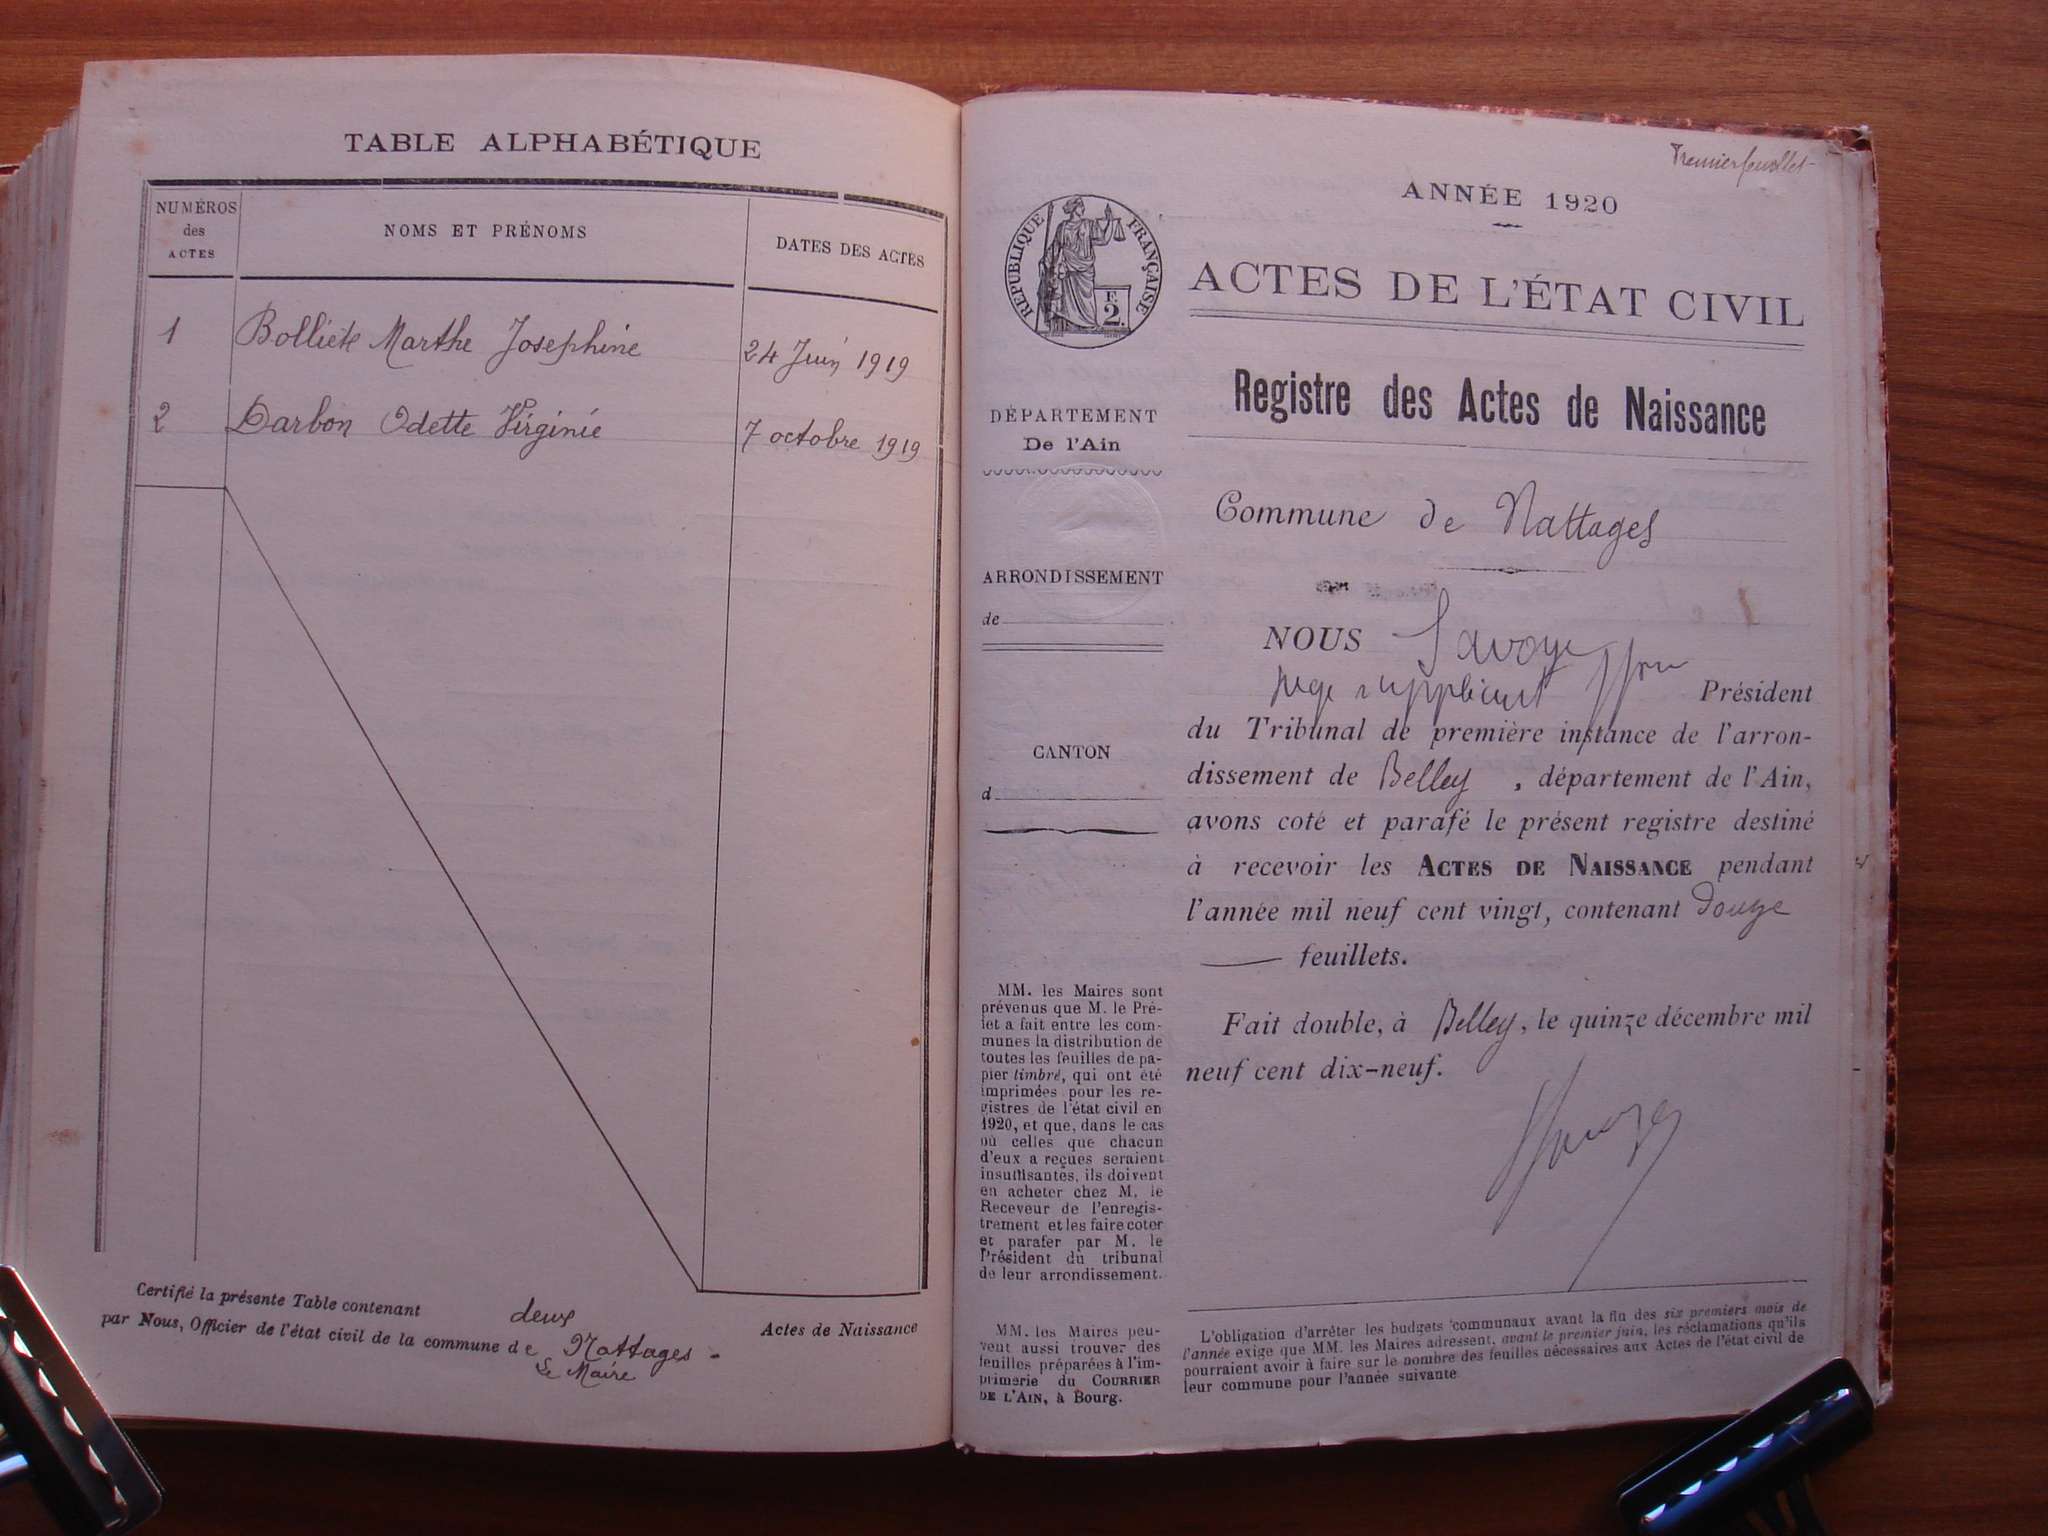 TABLE ALPHABÉTIQUE
NUMÉROS
des
ACTES
NOMS ET PRÉNOMS
DATES DES ACTES
1 Bolliet Marthe Josephine 24 Juin 1919
2 Darbon Odette Virginie 7 octobre 1919
Certifié la présente Table contenant deux Actes de Naissance
par Nous, Officier de l'état civil de la commune de Nattages
Le Maire
Premier feuillet
ANNÉE 1920
RÉPUBLIQUE FRANÇAISE
F.
2.
ACTES DE L'ÉTAT CIVIL
Registre des Actes de Naissance
DÉPARTEMENT
De l'Ain
ARRONDISSEMENT
de
CANTON
d
MM. les Maires sont
prévenus que M. le Pré-
fet a fait entre les com-
munes la distribution de
toutes les feuilles de pa-
pier timbré, qui ont été
imprimées pour les re-
gistres de l'état civil en
1920, et que, dans le cas
où celles que chacun
d'eux a reçues seraient
insuffisantes, ils doivent
en acheter chez M. le
Receveur de l'enregis-
trement et les faire coter
et parafer par M. le
Président du tribunal
de leur arrondissement.
MM. les Maires peu-
vent aussi trouver des
feuilles préparées à l'im-
primerie du COURRIER
DE L'AIN, à Bourg.
Commune de Nattages
NOUS Savoye
juge suppléant Président
du Tribunal de première instance de l'arron-
dissement de Belley, département de l'Ain,
avons coté et parafé le présent registre destiné
à recevoir les ACTES DE NAISSANCE pendant
l'année mil neuf cent vingt, contenant douze
feuillets.
Fait double, à Belley, le quinze décembre mil
neuf cent dix-neuf.
L'obligation d'arrêter les budgets communaux avant la fin des six premiers mois de
l'année exige que MM. les Maires adressent, avant le premier juin, les réclamations qu'ils
pourraient avoir à faire sur le nombre des feuilles nécessaires aux Actes de l'état civil de
leur commune pour l'année suivante